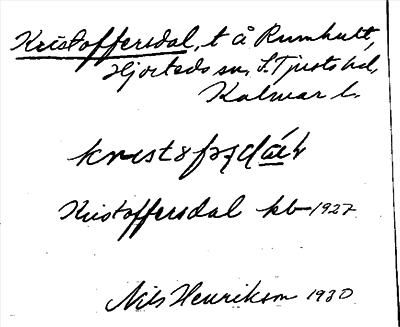 Kristoffersdal, t å Rumhult,
Hjorteds sn, S. Tjusts hd,
Kalmar l.
Kristoffersdal kb 1927
Nils Henrikson 1930